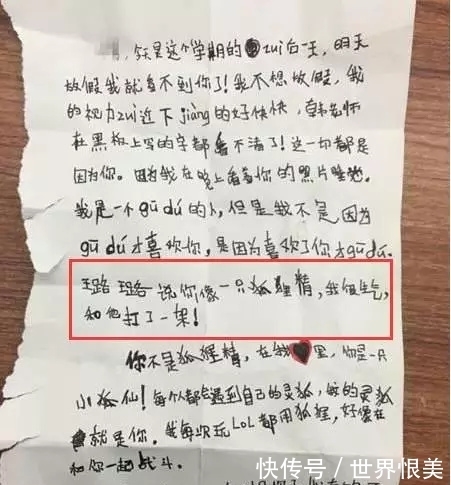 今天是这个学期的zui后一天，明天
放假我就看不到你了！我不想放假，我
的视力zui近下jiàng的好快快，韩老师
在黑板上写的字都看不清了！这一切都是
因为你。因为我在晚上看着你的照片睡觉。
我是一个gū dú的人，但是我不是因为
gū dú才喜欢你，是因为喜欢了你才gū dú.
璐璐说你像一只狐狸精，我很生气，
和他打了一架！
你不是狐狸精，在我❤里，你是一只
小狐仙！每个人都会遇到自己的灵狐，我的灵狐
就是你。我每次玩LoL都用狐狸，好像在
和你一起战斗。
快传号／世界恨美